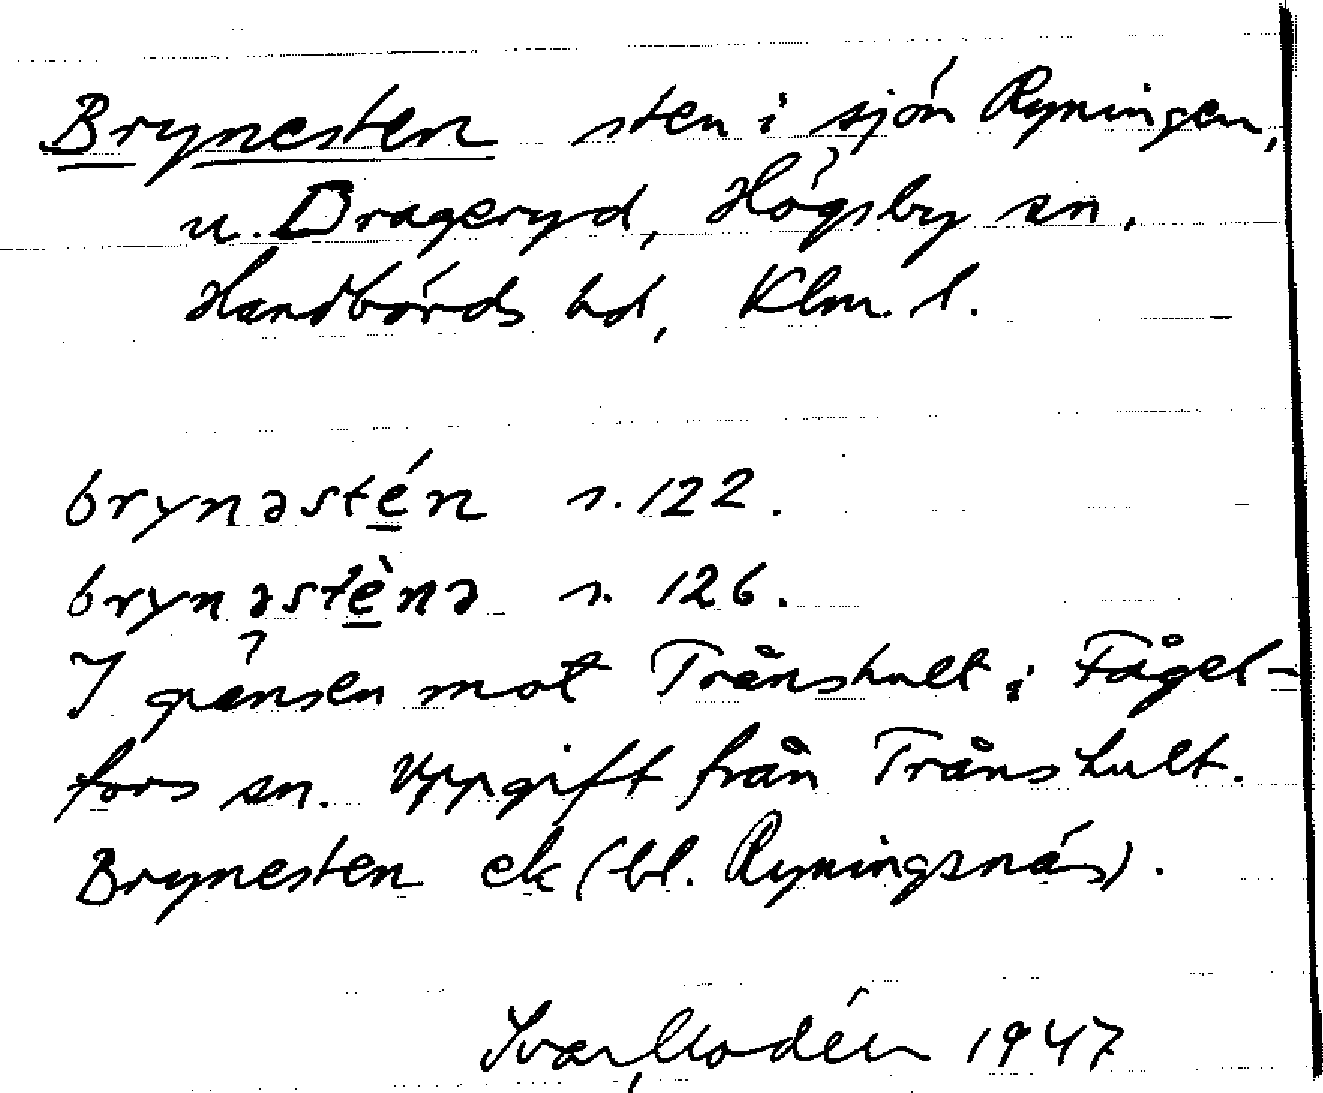 Brynesten sten i sjön Ryningen,
u. Drageryd, Högsby sn.
Handbörds hd, Klm. l.
brynəstén s. 122.
brynəstènə s. 126.
I gränsen mot Trånshult i Fågel-
fors sn. Uppgift från Trånshult.
Brynesten ek (bl. Ryningsnäs).
Ivar Modéer 1947